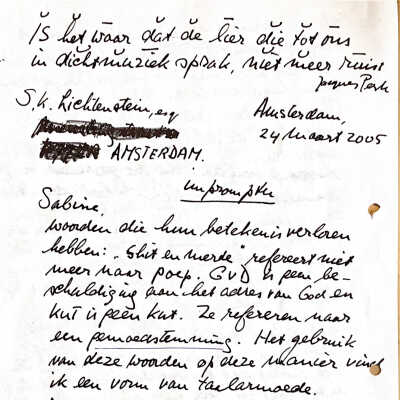 Is het waar dat de lier die tot ons
in dichtmuziek sprak, niet meer ruist
Jacques Perk
S.K. Lichtenstein, esq
Amsterdam,
24 maart 2005
AMSTERDAM.
impromptu
Sabine,
woorden die hun betekenis verloren
hebben: „Shit en merde" refereert niet
meer naar poep. GVD is geen be-
schuldiging aan het adres van God en
kut is geen kut. Ze refereren naar
een gemoedsstemming. Het gebruik
van deze woorden op deze manier vind
ik een vorm van taalarmoede.